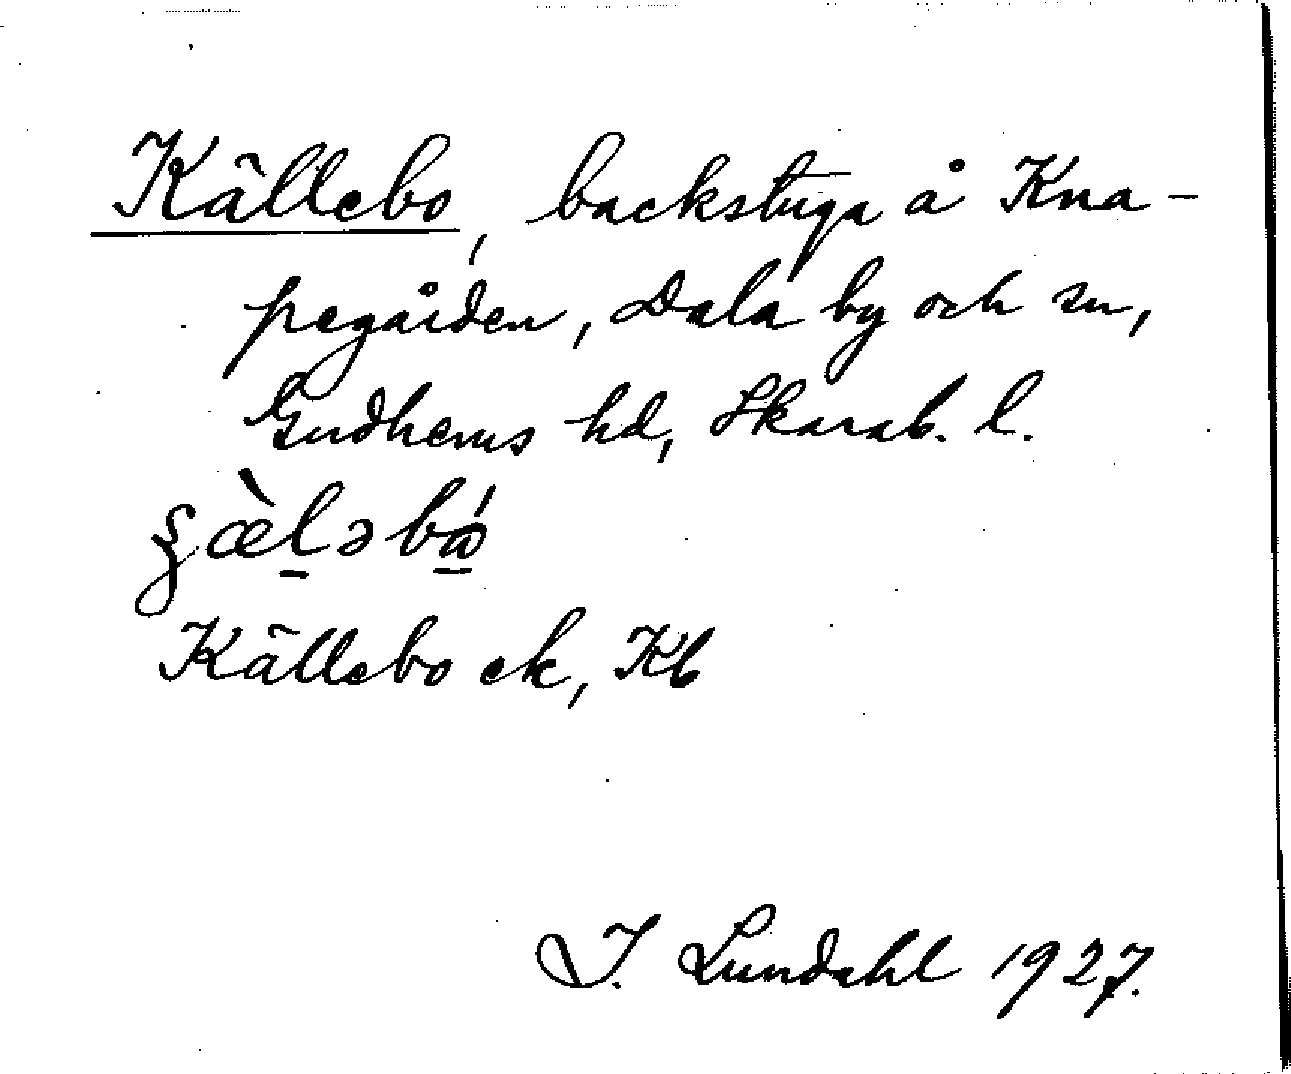 Källebo, backstuga å Kna-
pegården, Dala by och sn,
Gudhems hd, Skarab. l.
Källebo ek, Kb
I. Lundahl 1927.